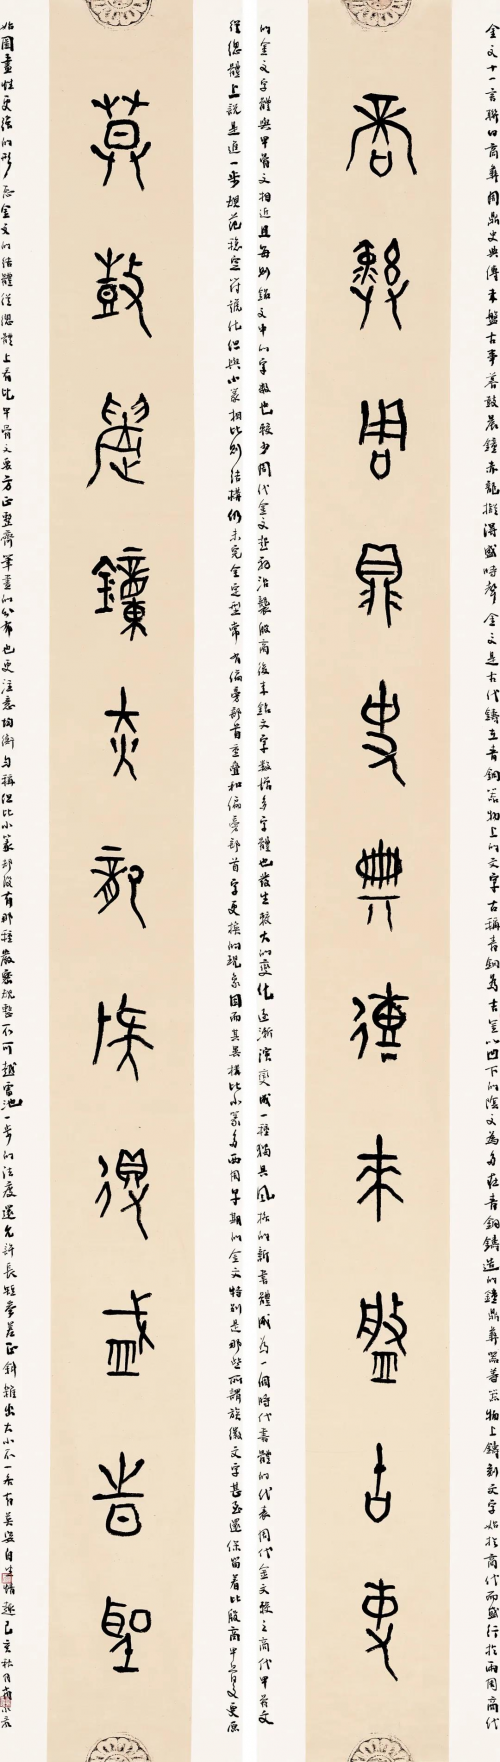 金文十一言聯曰商彝周鼎史典傳來盤古事暮鼓晨鐘赤龍得盛時聲 金文是古代鑄在青銅器物上的文字古稱青銅為吉金以凹下的陰文為多在青銅鑄造的鐘鼎彝器著器物上鑄刻文字始於商代而盛行於兩周商代
商彝周鼎史典傳來盤古事
的金文字體與甲骨文相近且每則銘文中的字數也較少周代金文起初沿襲殷商後來銘文字數增多字體也發生較大的變化逐漸演變成一種獨具風格的新書體成為一個時代書體的代表周代金文較之商代甲骨文
從總體上說是進一步規範穩定符號化但與小篆相比則結構仍未完全定型常有偏旁部首重疊和偏旁部首字更換的現象因而其異構比小篆多西周早期的金文特別是那些所謂族徽文字甚至還保留着比殷商甲骨文更原
莫鼓晨鐘赤龍得盛時聲
始圖畫性更強的形態金文的結體從總體上看比甲骨文要方正整齊筆畫的分布也更注意均衡勻稱但比小篆卻沒有那種嚴密規整不可越雷池一步的法度還允許長短參差正斜雜出大小不一自然情趣己亥秋月